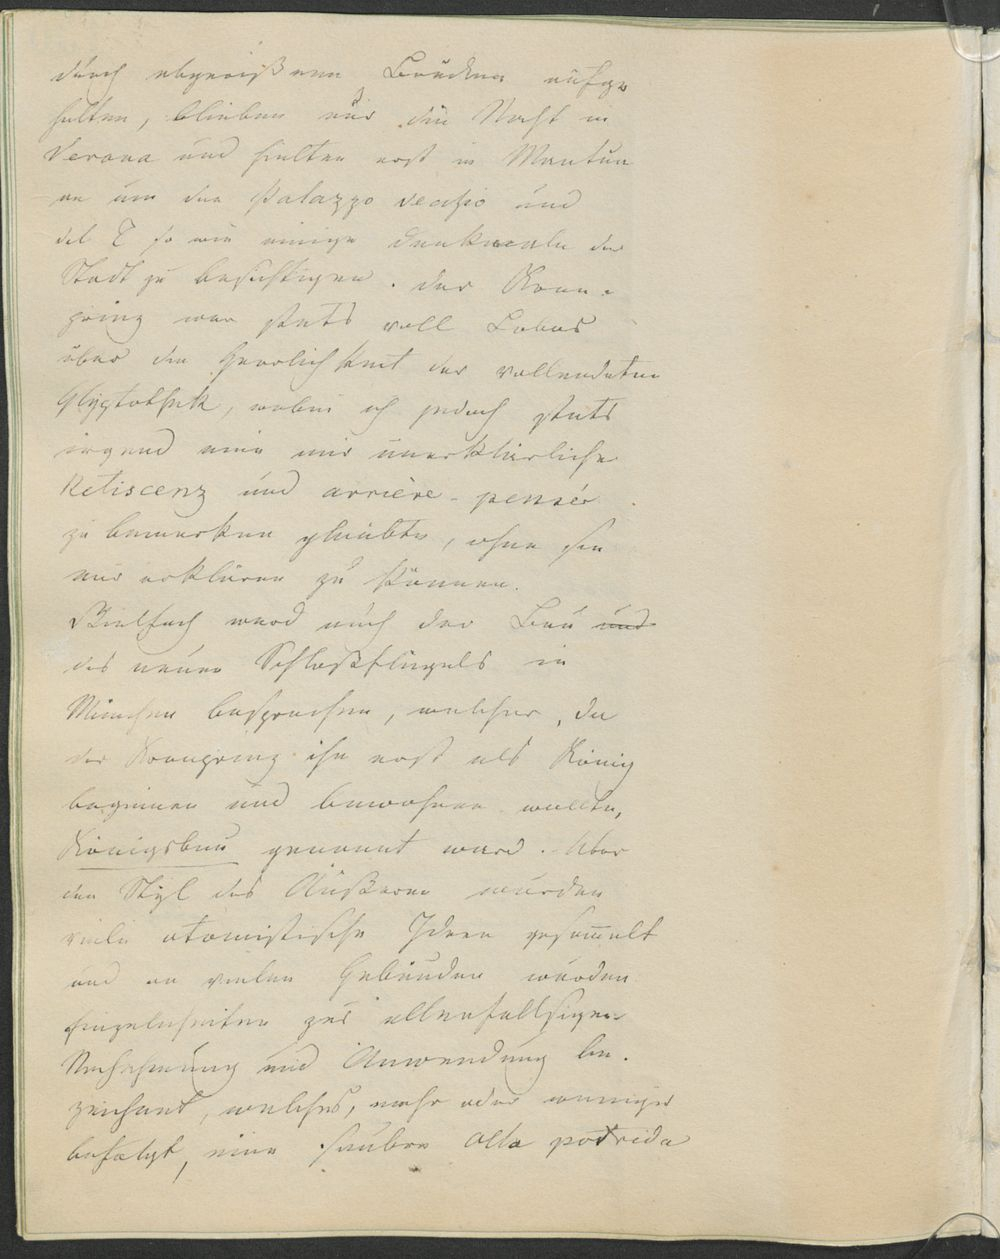 durch abgerißene Brücken aufge
halten, blieben nur die Nacht in
Verona und hielten erst in Mantua
an um den Palazzo vechio und
del T so wie einige Denkmale der
Stadt zu besichtigen. Der Kron-
prinz war stets voll Lobes
über die Herrlichkeit der vollendeten
Glyptothek, wobei ich jedoch stets
irgend eine mir unerklärliche
Retiscenz und arrière-pensée
zu bemerken glaubte, ohne sie
mir erklären zu können.
Vielfach ward auch der Bau und
des neuen Schloßflügels in
München besprochen, welcher, da
der Kronprinz ihn erst als König
beginnen und bewohnen wollte,
Königsbau genannt ward. Über
den Styl des Äußeren wurden
viele atomistische Ideen gesammelt
und an vielen Gebäuden wurden
Einzelnheiten zur allenfallsigen
Nachahmung und Anwendung be-
zeichnet, welches, mehr oder weniger
befolgt, eine saubere olla potrida